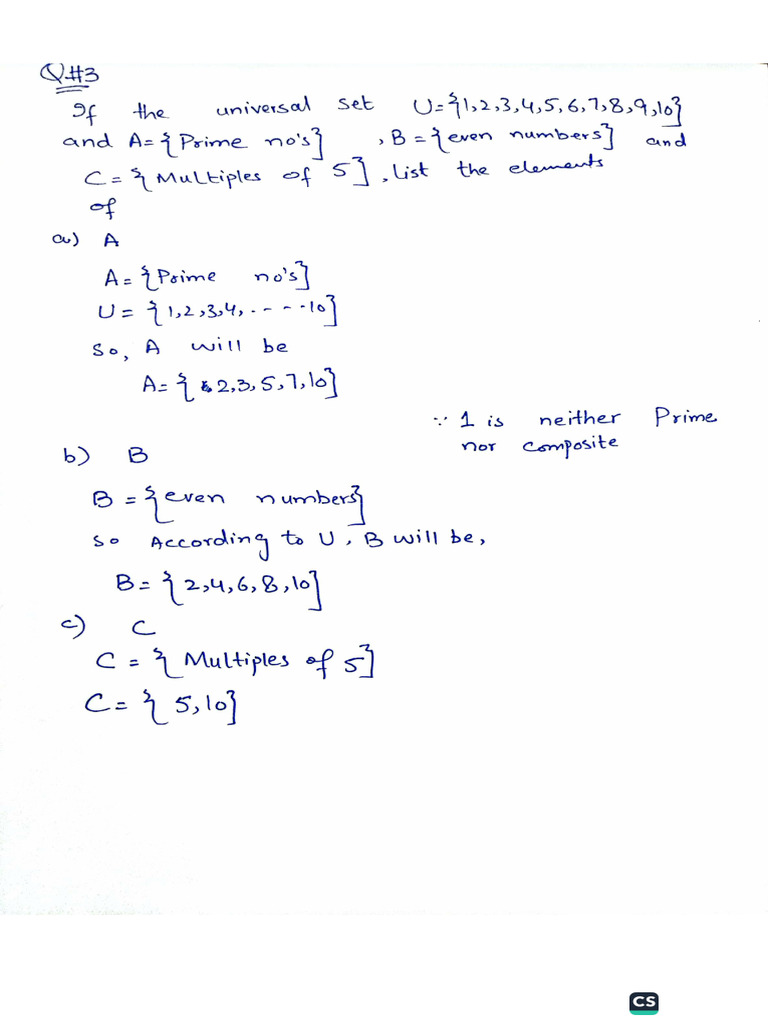 Q#3
If the universal set U={1,2,3,4,5,6,7,8,9,10}
and A={Prime no's} , B={even numbers} and
C={Multiples of 5}, List the elements
of
a) A
A={Prime no's}
U={1,2,3,4,.----10}
So, A will be
A={2,3,5,7,10}
∵ 1 is neither Prime
nor composite
b) B
B={even numbers}
so According to U, B will be,
B={2,4,6,8,10}
c) C
C={Multiples of 5}
C={5,10}
CS